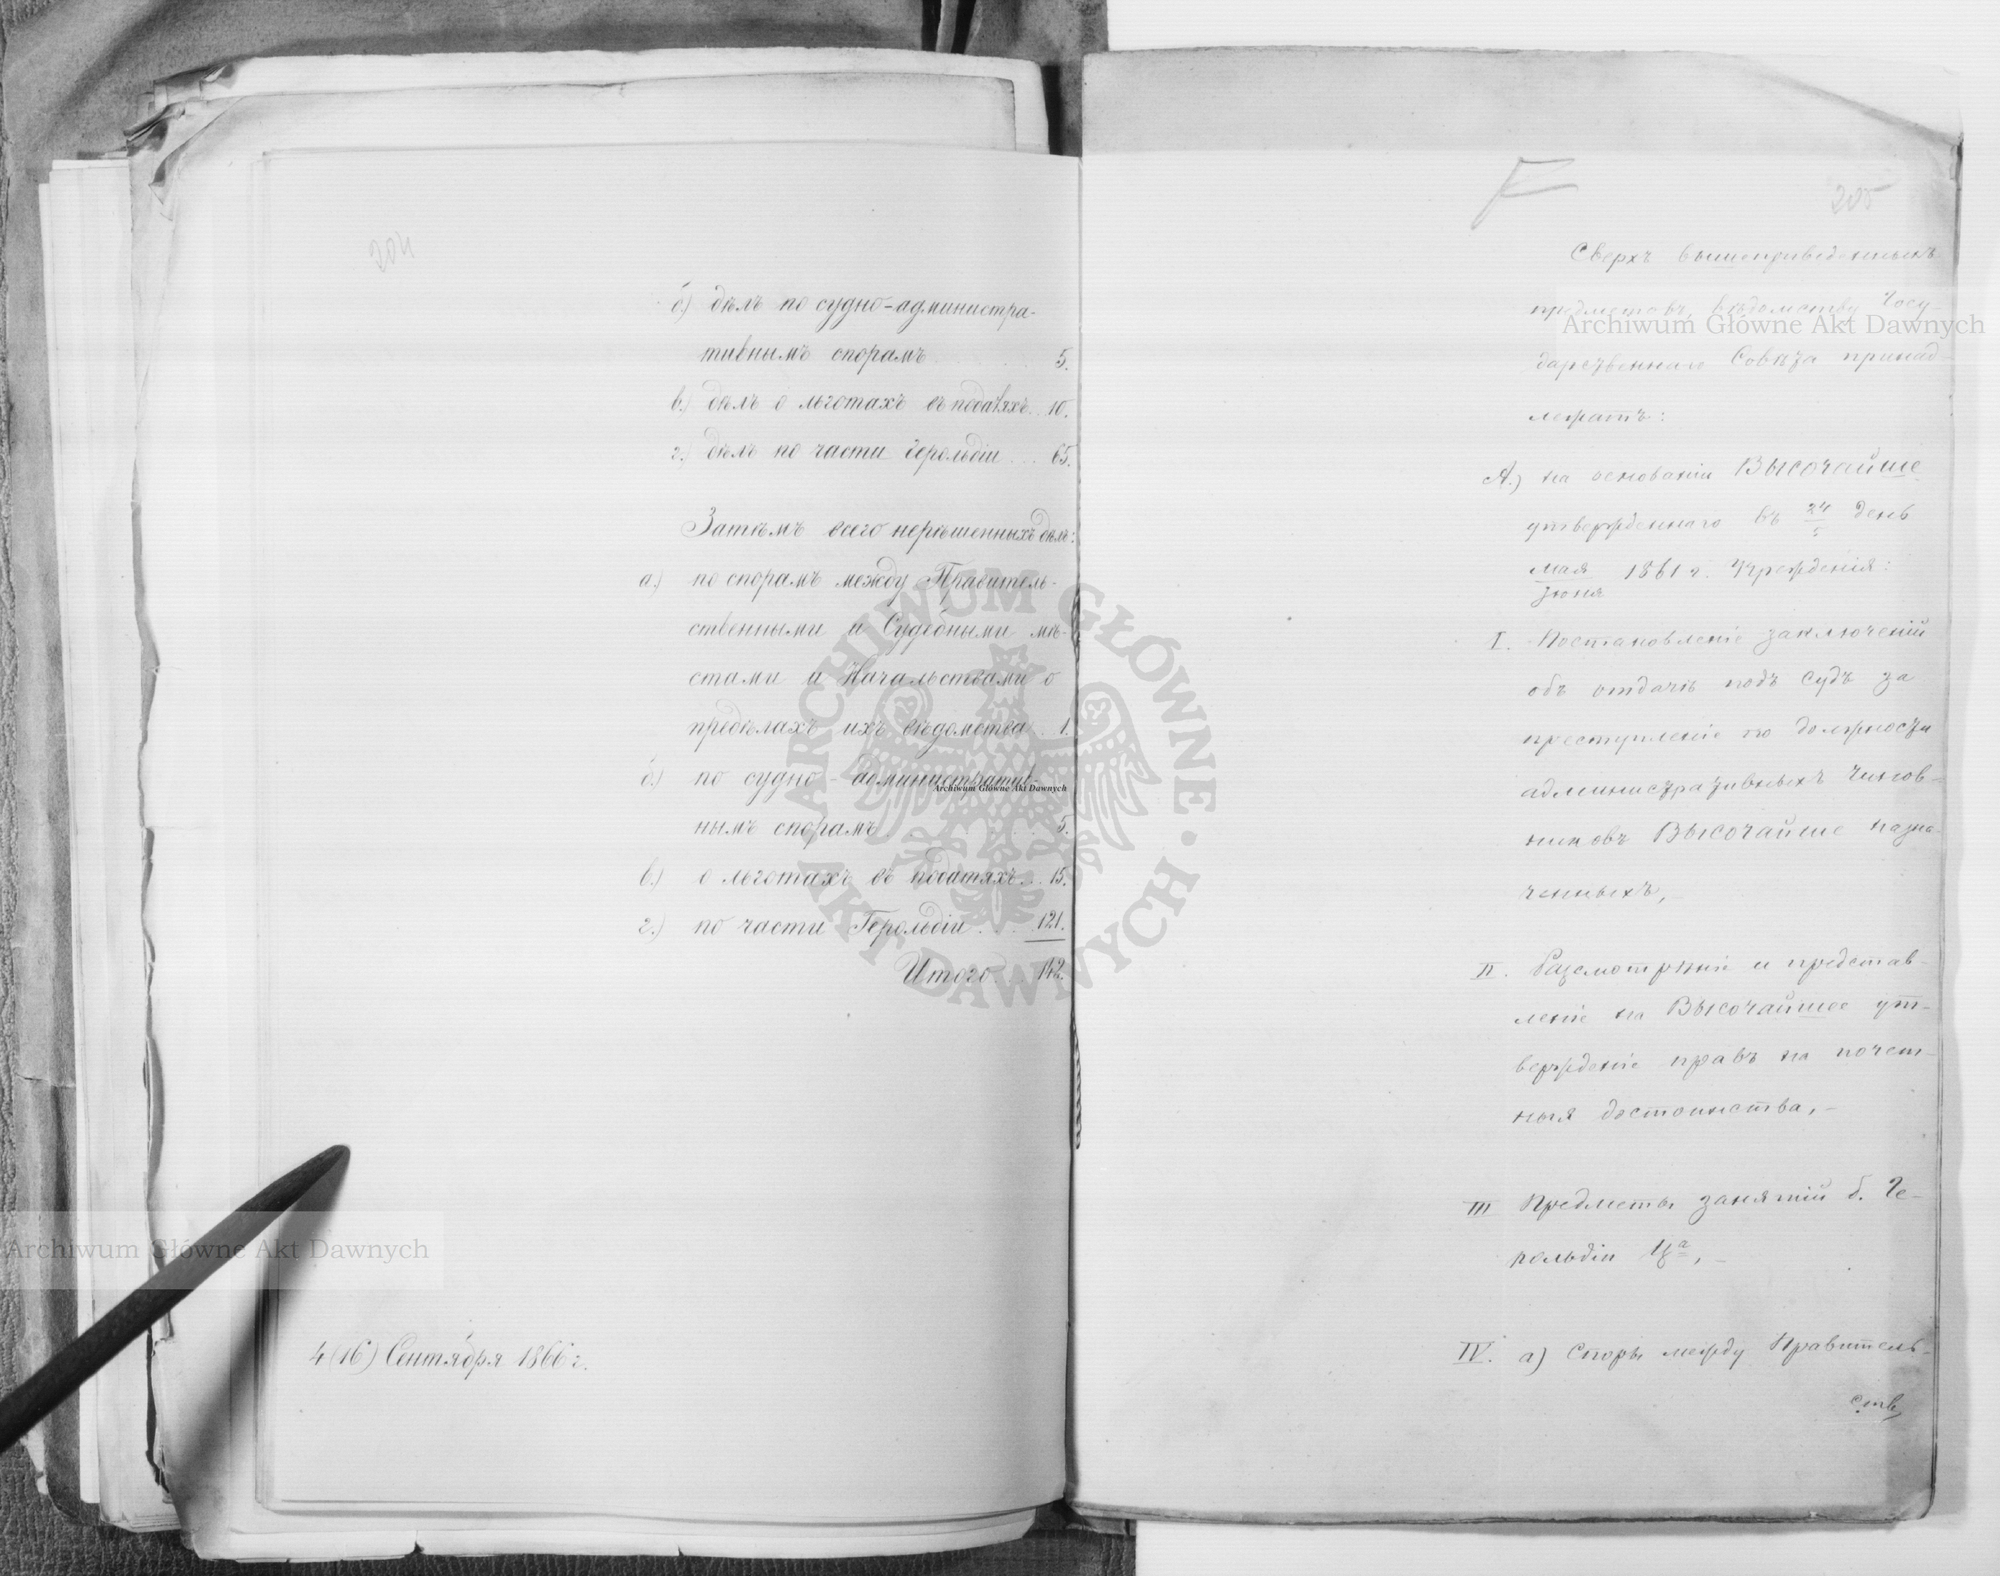 204
б.) дѣлъ по судно-администра-
тивнымъ спорамъ . . . 5.
в.) дѣлъ о льготахъ въ податяхъ . . 10.
г.) дѣлъ по части Герольдіи . . . 65.
Затѣмъ всего нерѣшенныхъ дѣлъ:
а.) по спорамъ между Правитель-
ственными и Судебными мѣ-
стами и Начальствами о
предѣлахъ ихъ вѣдомства . 1.
б.) по судно-административ-
нымъ спорамъ . . . 5.
в.) о льготахъ въ податяхъ . . . 15.
г.) по части Герольдіи . . . 121.
Итого . . . 142.
4 (16) Сентября 1866 г.
205
Сверхъ вышеприведенныхъ
предметовъ, вѣдомству Госу-
дарственнаго Совѣта принад-
лежатъ:
А.) на основаніи ВЫСОЧАЙШЕ
утвержденнаго въ 24/5 день
Мая/Іюня 1861 г. Учрежденія:
I. Постановленіе заключеній
объ отдачѣ подъ судъ за
преступленіе по должности
административныхъ чинов-
никовъ ВЫСОЧАЙШЕ назна-
ченныхъ, –
II. Разсмотрѣніе и представ-
леніе на ВЫСОЧАЙШЕЕ ут-
вержденіе правъ на почет-
ныя достоинства, –
III Предметы занятій б. Ге-
рольдіи Ц<sup>а</sup>, –
IV. а) Споры между Правитель-
ств
Archiwum Główne Akt Dawnych
Archiwum Główne Akt Dawnych
Archiwum Główne Akt Dawnych
ARCHIWUM GŁÓWNE · AKT DAWNYCH ·